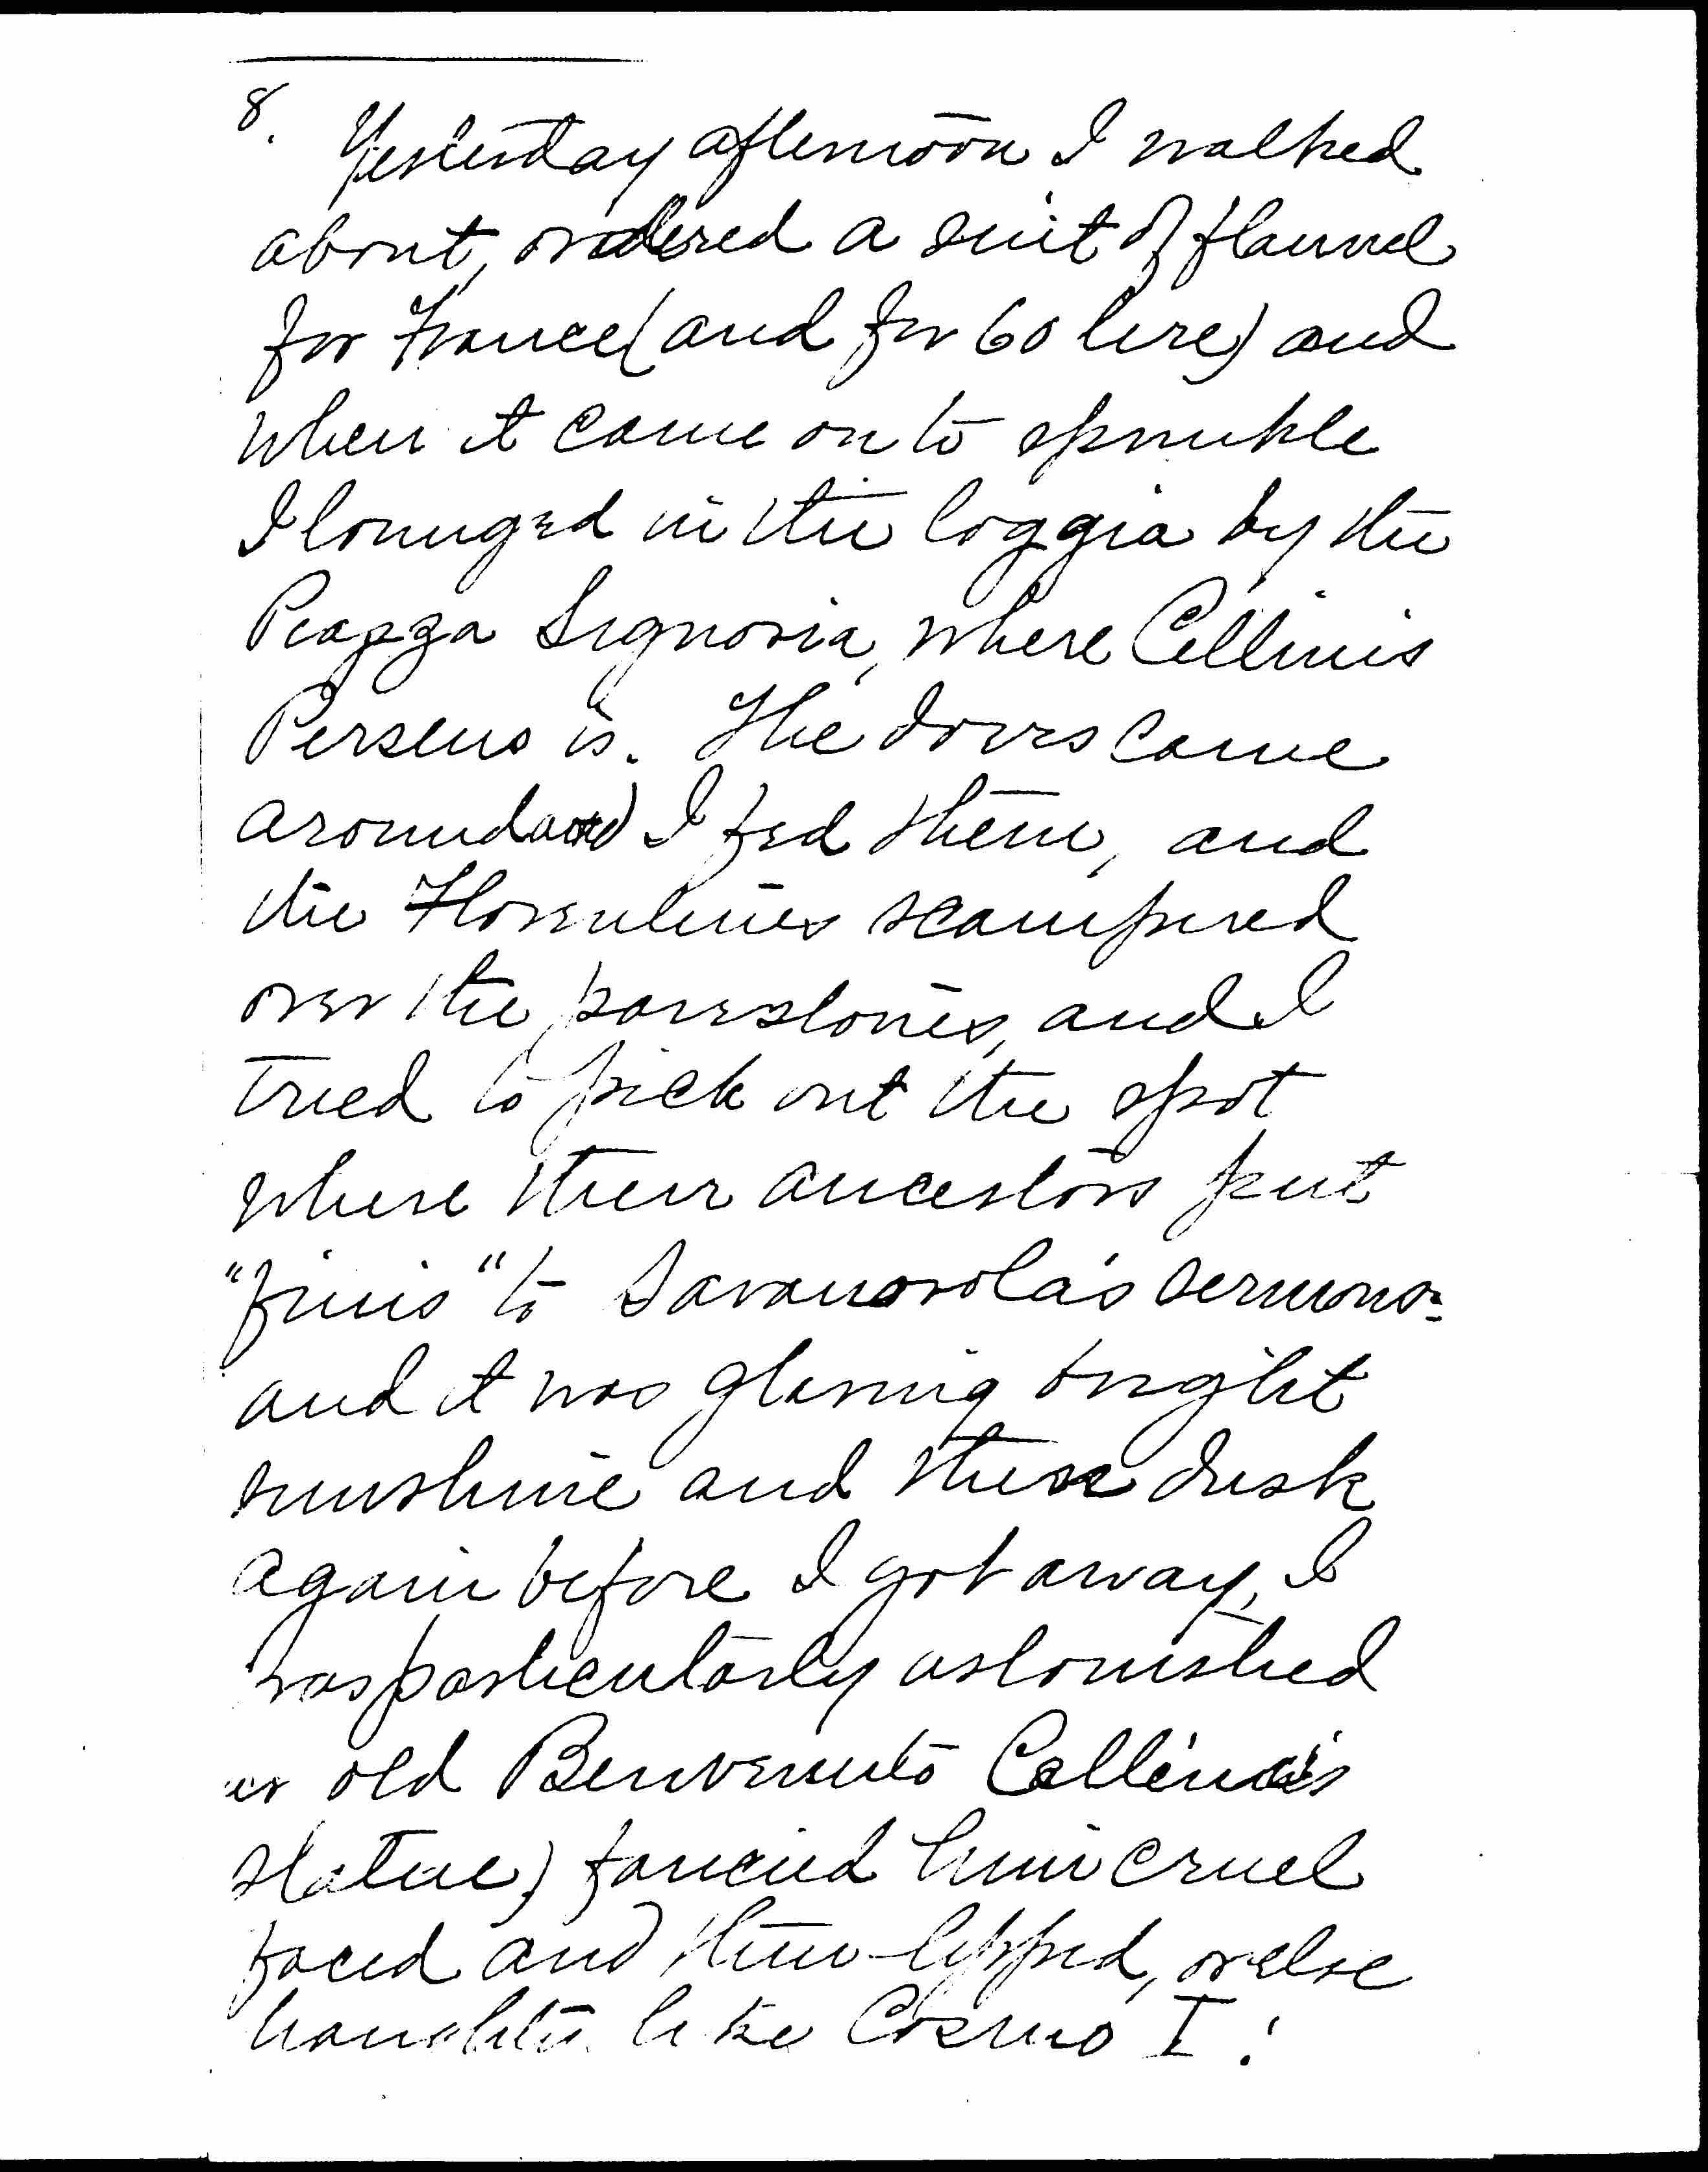 8. Yesterday afternoon I walked
about, ordered a suit of flannel
for France (and for 60 lire) and
when it came on to sprinkle
I lounged in the loggia by the
Piazza Signoria, where Cellini's
Perseus is. The doves came
around and I fed them, and
the Florentines scampered
over the pavestones, and I
tried to pick out the spot
where their ancestors put
"finis" to Savanorola's sermons:
and it was glaring bright
sunshine and then dusk
again before I got away, I
was particularly astonished
old Benvenuto Cellini's
statue; fancied him cruel
faced and thin-lipped, or else
haughty like Cosmo I: